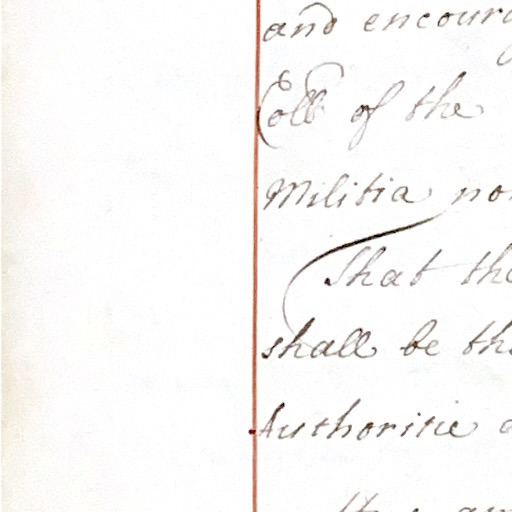 and encourag
Coll of the
Militia no
That the
shall be the
Authoritie